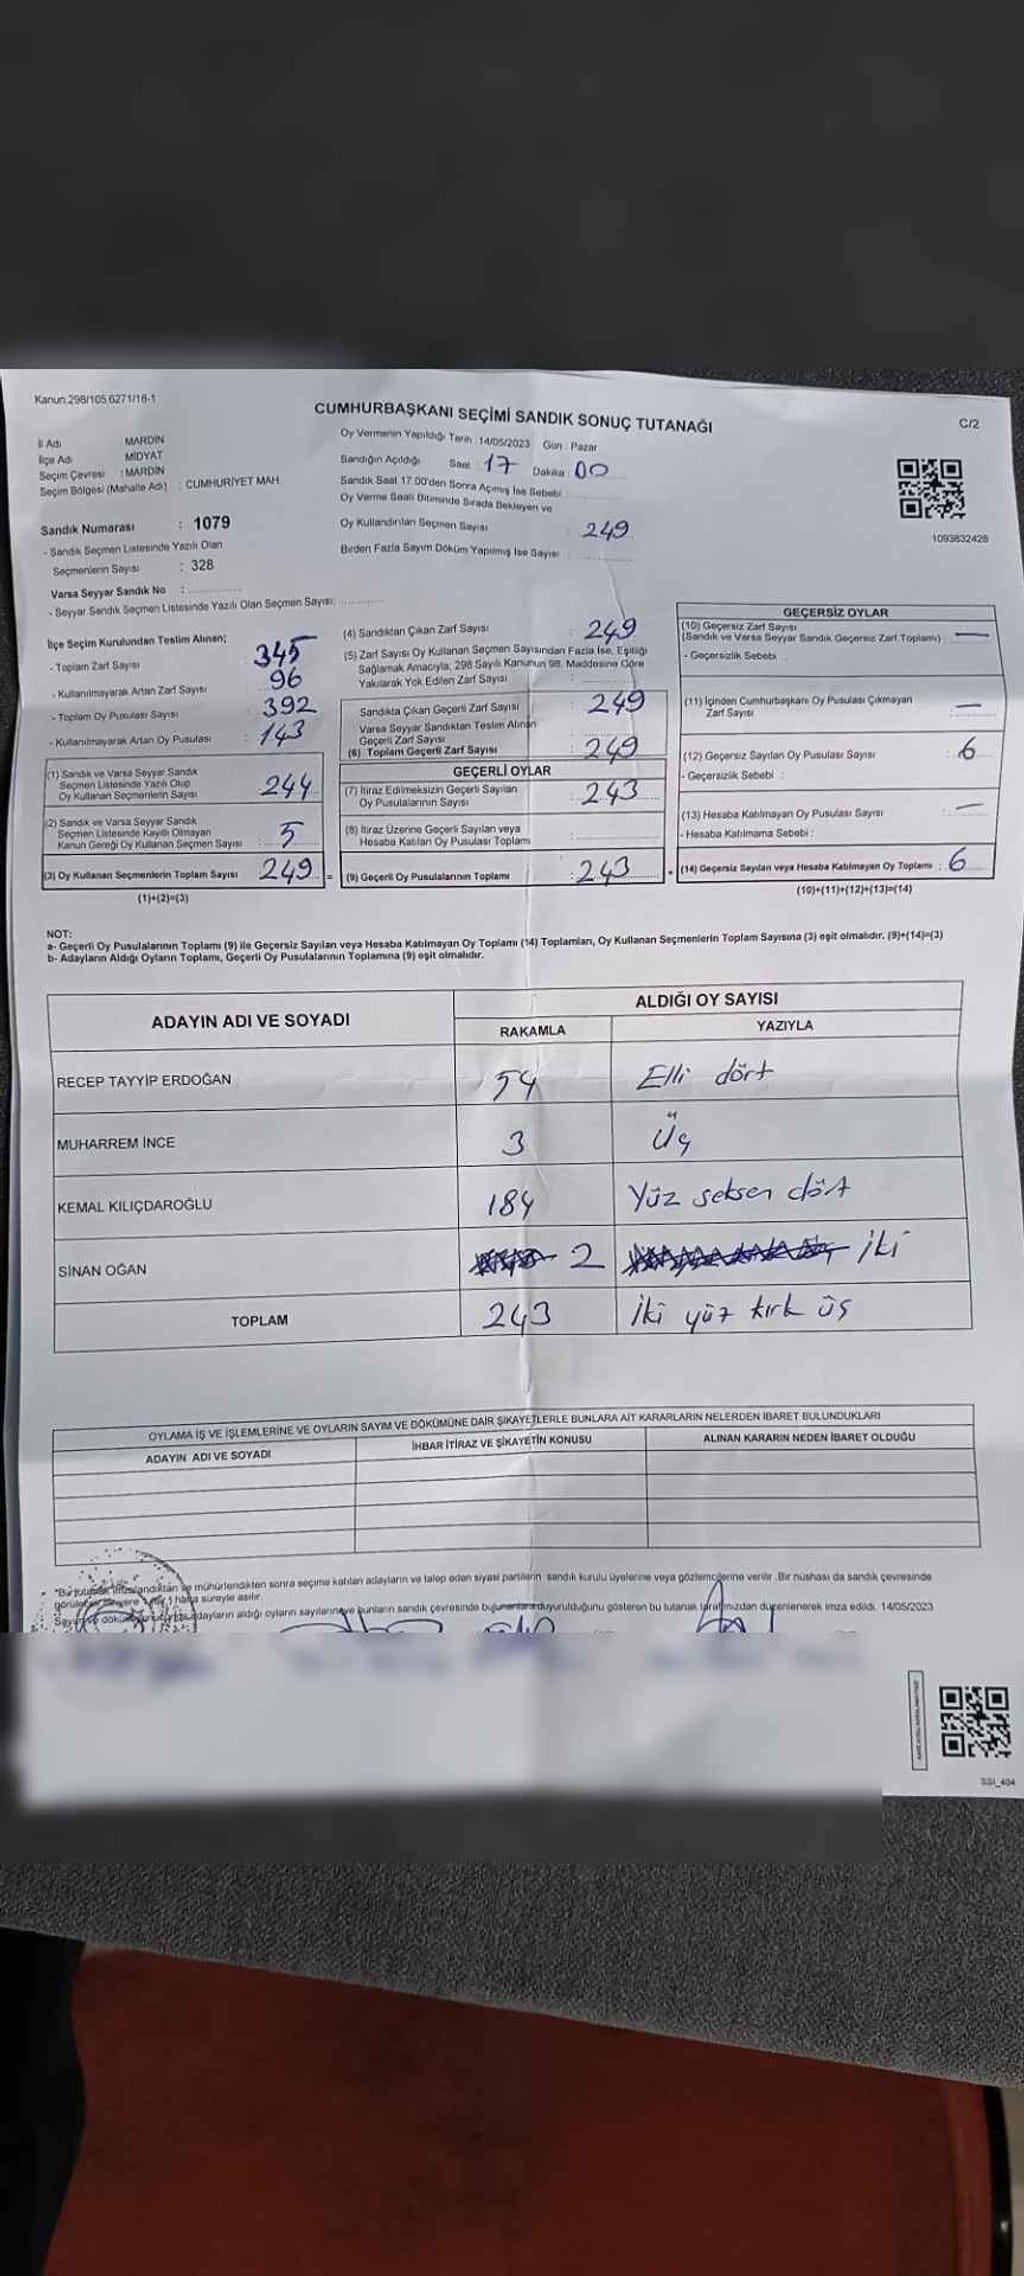 Kanun.298/105,6271/16-1
CUMHURBAŞKANI SEÇİMİ SANDIK SONUÇ TUTANAĞI
C/2
İl Adı MARDİN
İlçe Adı MİDYAT
Seçim Çevresi : MARDİN
Seçim Bölgesi (Mahalle Adı) : CUMHURİYET MAH.
Oy Vermenin Yapıldığı Tarih : 14/05/2023 Gün : Pazar
Sandığın Açıldığı Saat 17 Dakika : 00
Sandık Saat 17.00'den Sonra Açılmış İse Sebebi
Oy Verme Saati Bitiminde Sırada Bekleyen ve
Oy Kullandırılan Seçmen Sayısı : 249
Birden Fazla Sayım Döküm Yapılmış İse Sayısı :
1093832428
Sandık Numarası : 1079
- Sandık Seçmen Listesinde Yazılı Olan
Seçmenlerin Sayısı : 328
Varsa Seyyar Sandık No :
- Seyyar Sandık Seçmen Listesinde Yazılı Olan Seçmen Sayısı:
İlçe Seçim Kurulundan Teslim Alınan;
- Toplam Zarf Sayısı 345
- Kullanılmayarak Artan Zarf Sayısı 96
- Toplam Oy Pusulası Sayısı 392
- Kullanılmayarak Artan Oy Pusulası : 143
(1) Sandık ve Varsa Seyyar Sandık
Seçmen Listesinde Yazılı Olup
Oy Kullanan Seçmenlerin Sayısı 244
(2) Sandık ve Varsa Seyyar Sandık
Seçmen Listesinde Kayıtlı Olmayan
Kanun Gereği Oy Kullanan Seçmen Sayısı : 5
(3) Oy Kullanan Seçmenlerin Toplam Sayısı 249 =
(1)+(2)=(3)
(4) Sandıktan Çıkan Zarf Sayısı : 249
(5) Zarf Sayısı Oy Kullanan Seçmen Sayısından Fazla İse, Eşitliği
Sağlamak Amacıyla, 298 Sayılı Kanunun 98. Maddesine Göre
Yakılarak Yok Edilen Zarf Sayısı :
Sandıkta Çıkan Geçerli Zarf Sayısı : 249
Varsa Seyyar Sandıktan Teslim Alınan
Geçerli Zarf Sayısı
(6) Toplam Geçerli Zarf Sayısı : 249
GEÇERLİ OYLAR
(7) İtiraz Edilmeksizin Geçerli Sayılan
Oy Pusulalarının Sayısı : 243
(8) İtiraz Üzerine Geçerli Sayılan veya
Hesaba Katılan Oy Pusulası Toplamı :
(9) Geçerli Oy Pusulalarının Toplamı : 243
GEÇERSİZ OYLAR
(10) Geçersiz Zarf Sayısı
(Sandık ve Varsa Seyyar Sandık Geçersiz Zarf Toplamı) : —
- Geçersizlik Sebebi :
(11) İçinden Cumhurbaşkanı Oy Pusulası Çıkmayan
Zarf Sayısı : —
(12) Geçersiz Sayılan Oy Pusulası Sayısı : 6
- Geçersizlik Sebebi :
(13) Hesaba Katılmayan Oy Pusulası Sayısı : —
- Hesaba Katılmama Sebebi :
(14) Geçersiz Sayılan veya Hesaba Katılmayan Oy Toplamı : 6
(10)+(11)+(12)+(13)=(14)
NOT:
a- Geçerli Oy Pusulalarının Toplamı (9) ile Geçersiz Sayılan veya Hesaba Katılmayan Oy Toplamı (14) Toplamları, Oy Kullanan Seçmenlerin Toplam Sayısına (3) eşit olmalıdır. (9)+(14)=(3)
b- Adayların Aldığı Oyların Toplamı, Geçerli Oy Pusulalarının Toplamına (9) eşit olmalıdır.
ADAYIN ADI VE SOYADI ALDIĞI OY SAYISI
RAKAMLA YAZIYLA
RECEP TAYYİP ERDOĞAN 54 Elli dört
MUHARREM İNCE 3 Üç
KEMAL KILIÇDAROĞLU 184 Yüz seksen dört
SİNAN OĞAN 2 İki
TOPLAM 243 İki yüz kırk üç
OYLAMA İŞ VE İŞLEMLERİNE VE OYLARIN SAYIM VE DÖKÜMÜNE DAİR ŞİKAYETLERLE BUNLARA AİT KARARLARIN NELERDEN İBARET BULUNDUKLARI
ADAYIN ADI VE SOYADI İHBAR İTİRAZ VE ŞİKAYETİN KONUSU ALINAN KARARIN NEDEN İBARET OLDUĞU
mühürlendikten sonra seçime katılan adayların ve talep eden siyasi partilerin sandık kurulu üyelerine veya gözlemcilerine verilir .Bir nüshası da sandık çevresinde
1 hafta süreyle asılır.
adayların aldığı oyların sayılarını ve bunların sandık çevresinde bulunanlara duyurulduğunu gösteren bu tutanak tarafımızdan düzenlenerek imza edildi. 14/05/2023
SSI_404